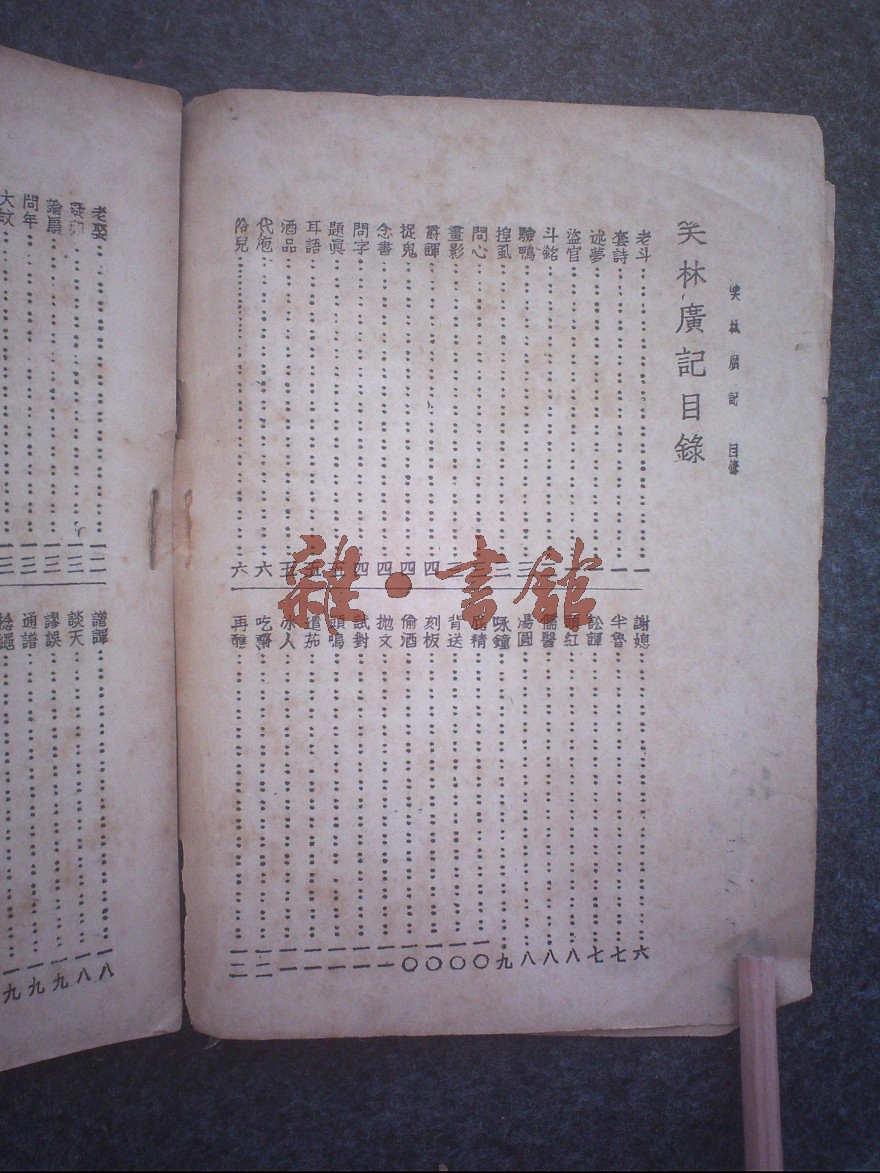 笑林廣記 目錄
笑林廣記目錄
老斗 一
套詩 一
述夢
盜官
斗銘
驗鴨 三
捏虱 三
問心
畫影 三
爵諢 四
捉鬼 四
念書 四
問字 四
題眞 五
耳語 五
酒品 五
代庖 六
俗兒 六
謝媳 六
半魯 七
訟諢 七
頭紅 八
儒醫 八
湯圓 八
咏鐘 九
屁精 一〇
背送 一〇
刻板 一〇
偷酒 一〇
拋文 一一
試對 一一
頭鳴 一一
遣茄 一一
冰人 一一
吃齋 一二
再醮 一二
老娶 一二
論扇 一三
問年 一三
大蚊 一三
譜諢 一八
談天 一八
謬誤 一九
通譜 一九
捻繩 一九
雜·書館